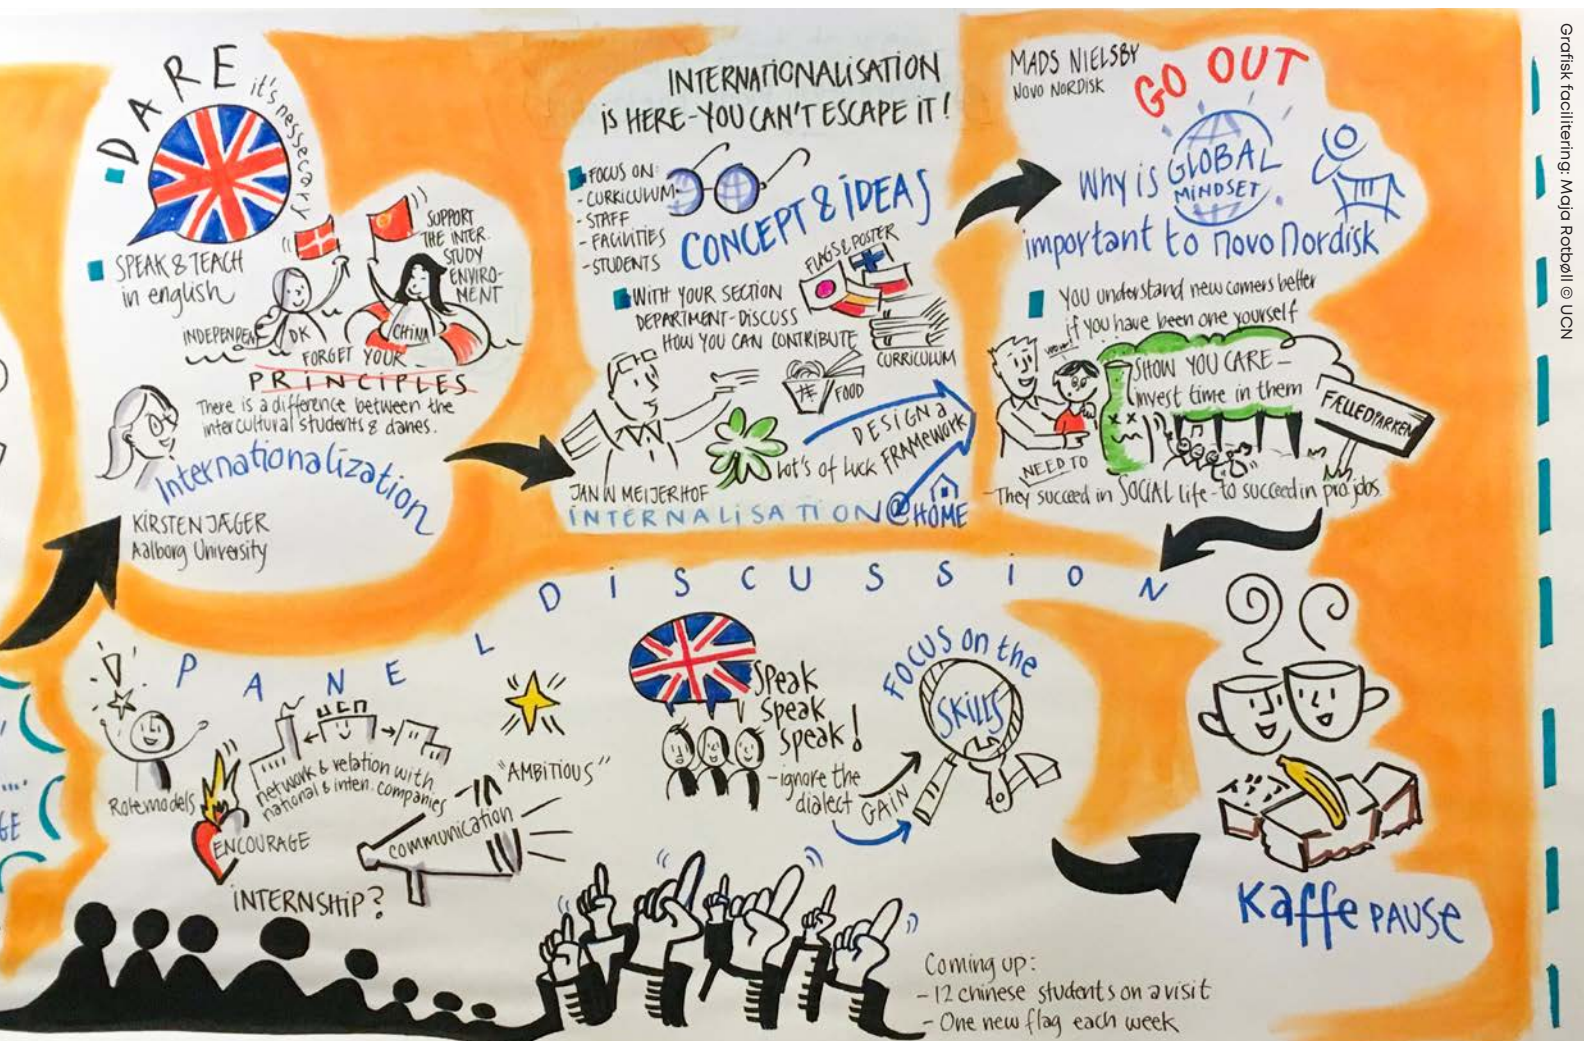 DARE
it's nessecary
SPEAK & TEACH
in english
SUPPORT
THE INTER.
STUDY
ENVIRO-
MENT
INDEPENDEN
DK
CHINA
FORGET YOUR
PRINCIPLES
There is a difference between the
intercultural students & danes.
Internationalization
KIRSTEN JÆGER
Aalborg University
INTERNATIONALISATION
IS HERE - YOU CAN'T ESCAPE IT!
FOCUS ON:
- CURRICULUM
- STAFF
- FACILITIES
- STUDENTS
CONCEPT & IDEAS
FLAGS & POSTER
WITH YOUR SECTION
DEPARTMENT - DISCUSS
HOW YOU CAN CONTRIBUTE
CURRICULUM
FOOD
DESIGN a
FRAMEWORK
Lot's of luck
JAN W MEIJERHOF
INTERNALISATION @ HOME
MADS NIELSBY
NOVO NORDISK
GO OUT
Why is GLOBAL
MINDSET
important to novo nordisk
YOU understand new comers better
if you have been one yourself
SHOW YOU CARE -
invest time in them
FÆLLEDPARKEN
NEED TO
- They succeed in SOCIAL life - to succeed in pro. jobs.
PANEL DISCUSSION
Rolemodels
UCN
network & relation with
national & inten. companies
"AMBITIOUS"
ENCOURAGE
communication
INTERNSHIP?
Speak
Speak
Speak!
- ignore the
dialect
GAIN
FOCUS on the
SKILLS
Kaffe PAUSE
Coming up:
- 12 chinese students on a visit
- One new flag each week
Grafisk facilitering: Maja Rotbøll © UCN